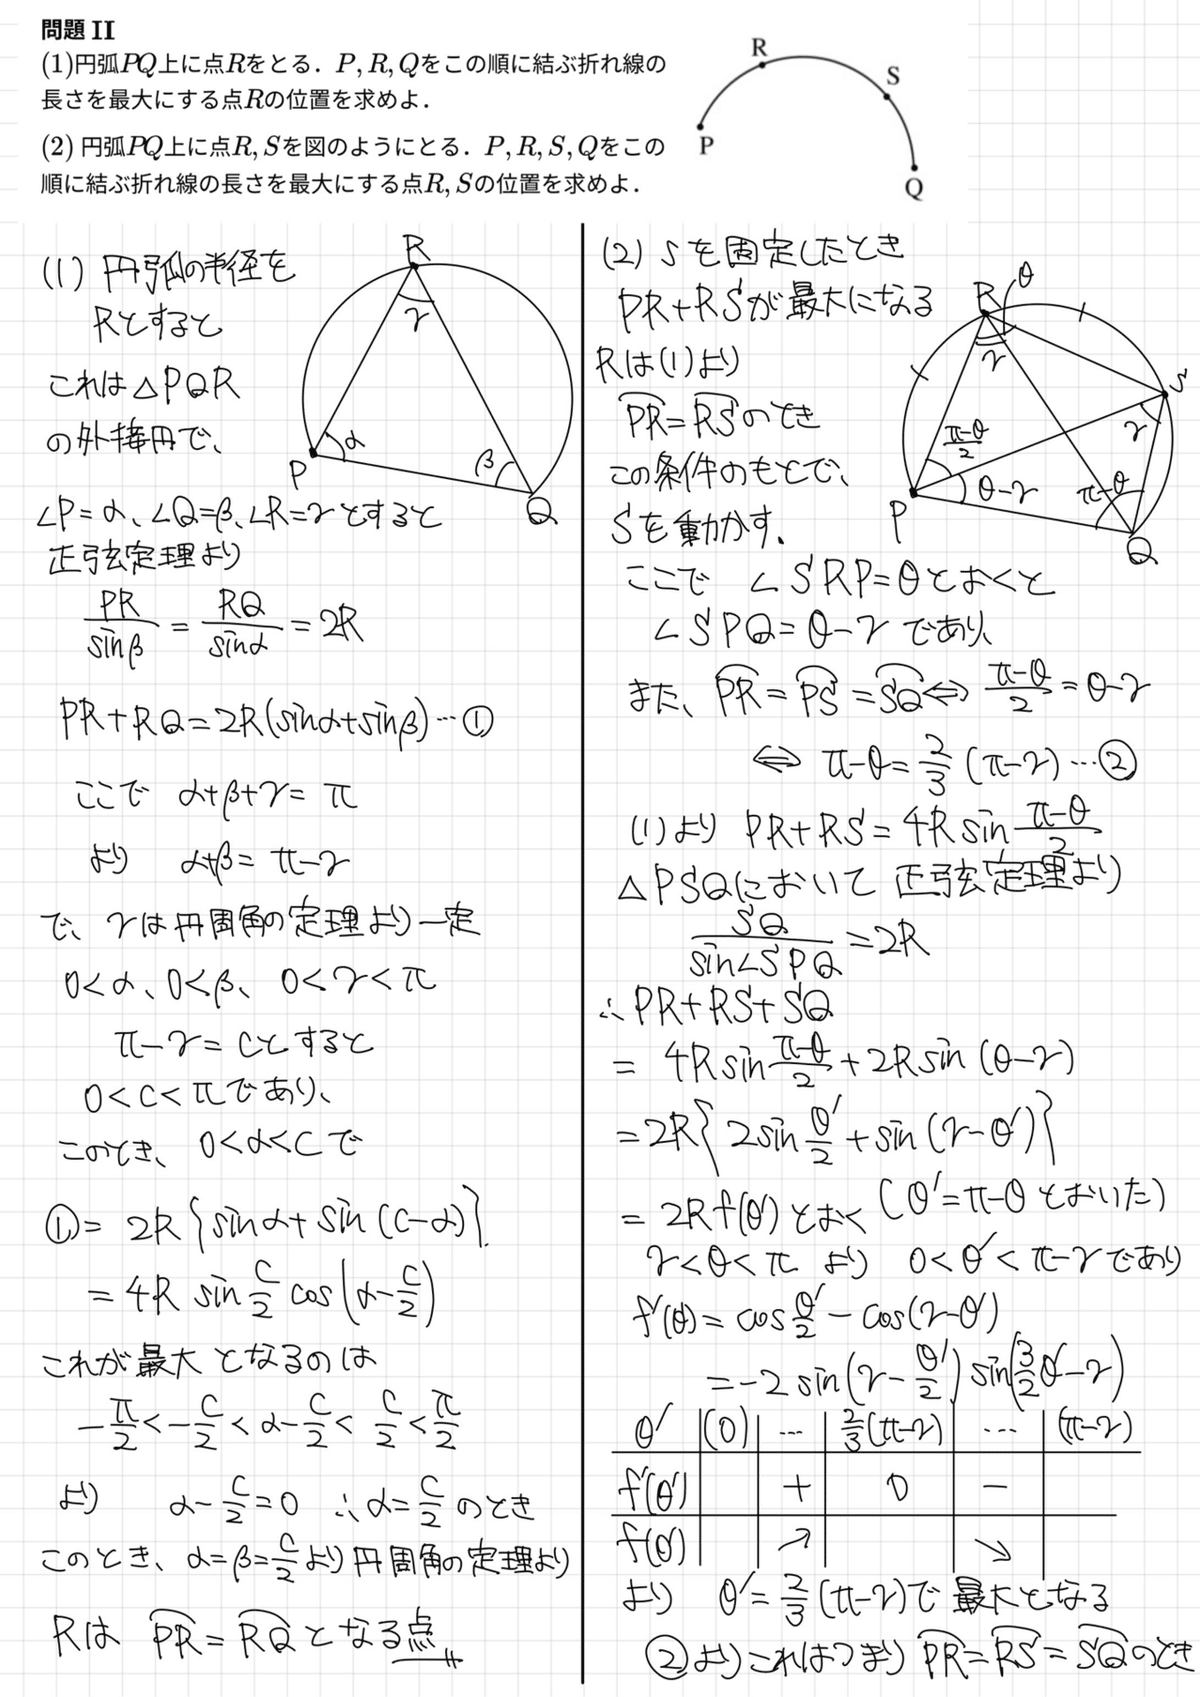 問題 II
(1)円弧PQ上に点Rをとる．P, R, Qをこの順に結ぶ折れ線の
長さを最大にする点Rの位置を求めよ．
(2) 円弧PQ上に点R, Sを図のようにとる．P, R, S, Qをこの
順に結ぶ折れ線の長さを最大にする点R, Sの位置を求めよ．
R
S
P
Q
(1) 円弧の半径を
Rとすると
これは△PQR
の外接円で、
∠P=α、∠Q=β、∠R=γとすると
正弦定理より
PR/sinβ = RQ/sinα = 2R
PR+RQ=2R(sinα+sinβ)…①
ここで α+β+γ=π
より α+β=π-γ
で、γは円周角の定理より一定
0<α、0<β、0<γ<π
π-γ=Cとすると
0<C<πであり、
このとき、0<α<Cで
①= 2R{sinα+sin(C-α)}
= 4R sin C/2 cos(α-C/2)
これが最大となるのは
-π/2<-C/2<α-C/2<C/2<π/2
より α-C/2=0 ∴α=C/2のとき
このとき、α=β=C/2より円周角の定理より
Rは PR=RQとなる点
R
γ
α
β
P
Q
(2) Sを固定したとき
PR+RSが最大になる
Rは(1)より
PR=RSのとき
この条件のもとで、
Sを動かす．
R
θ
γ
S
γ
π-θ/2
θ-γ
π-θ
P
Q
ここで ∠SRP=θとおくと
∠SPQ=θ-γであり、
また、PR=PS=SQ⇔π-θ/2=θ-γ
⇔ π-θ=2/3(π-γ)…②
(1)より PR+RS=4R sin π-θ/2
△PSQにおいて正弦定理より
SQ/sin∠SPQ=2R
∴PR+RS+SQ
= 4R sin π-θ/2+2R sin(θ-γ)
=2R{2sin θ'/2+sin(γ-θ')}
= 2Rf(θ')とおく (θ'=π-θとおいた)
γ<θ<π より 0<θ'<π-γであり
f'(θ)=cos θ'/2-cos(γ-θ')
=-2 sin(γ-θ'/2) sin(3/2θ'-γ)
θ' (0) … 2/3(π-γ) … (π-γ)
f'(θ') + 0 -
f(θ') ↗ ↘
より θ'=2/3(π-γ)で最大となる
②よりこれはつまり PR=RS=SQのとき